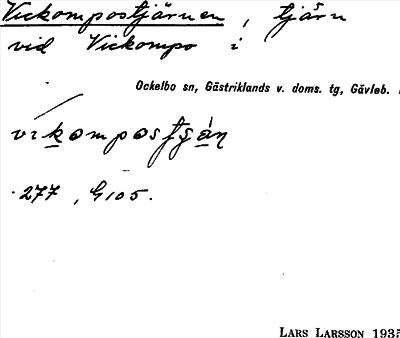 Vickompostjärnen, tjärn
vid Vickompo i
Ockelbo sn, Gästriklands v. doms. tg, Gävleb.
vikompostjạ́n
277, G105.
LARS LARSSON 1935